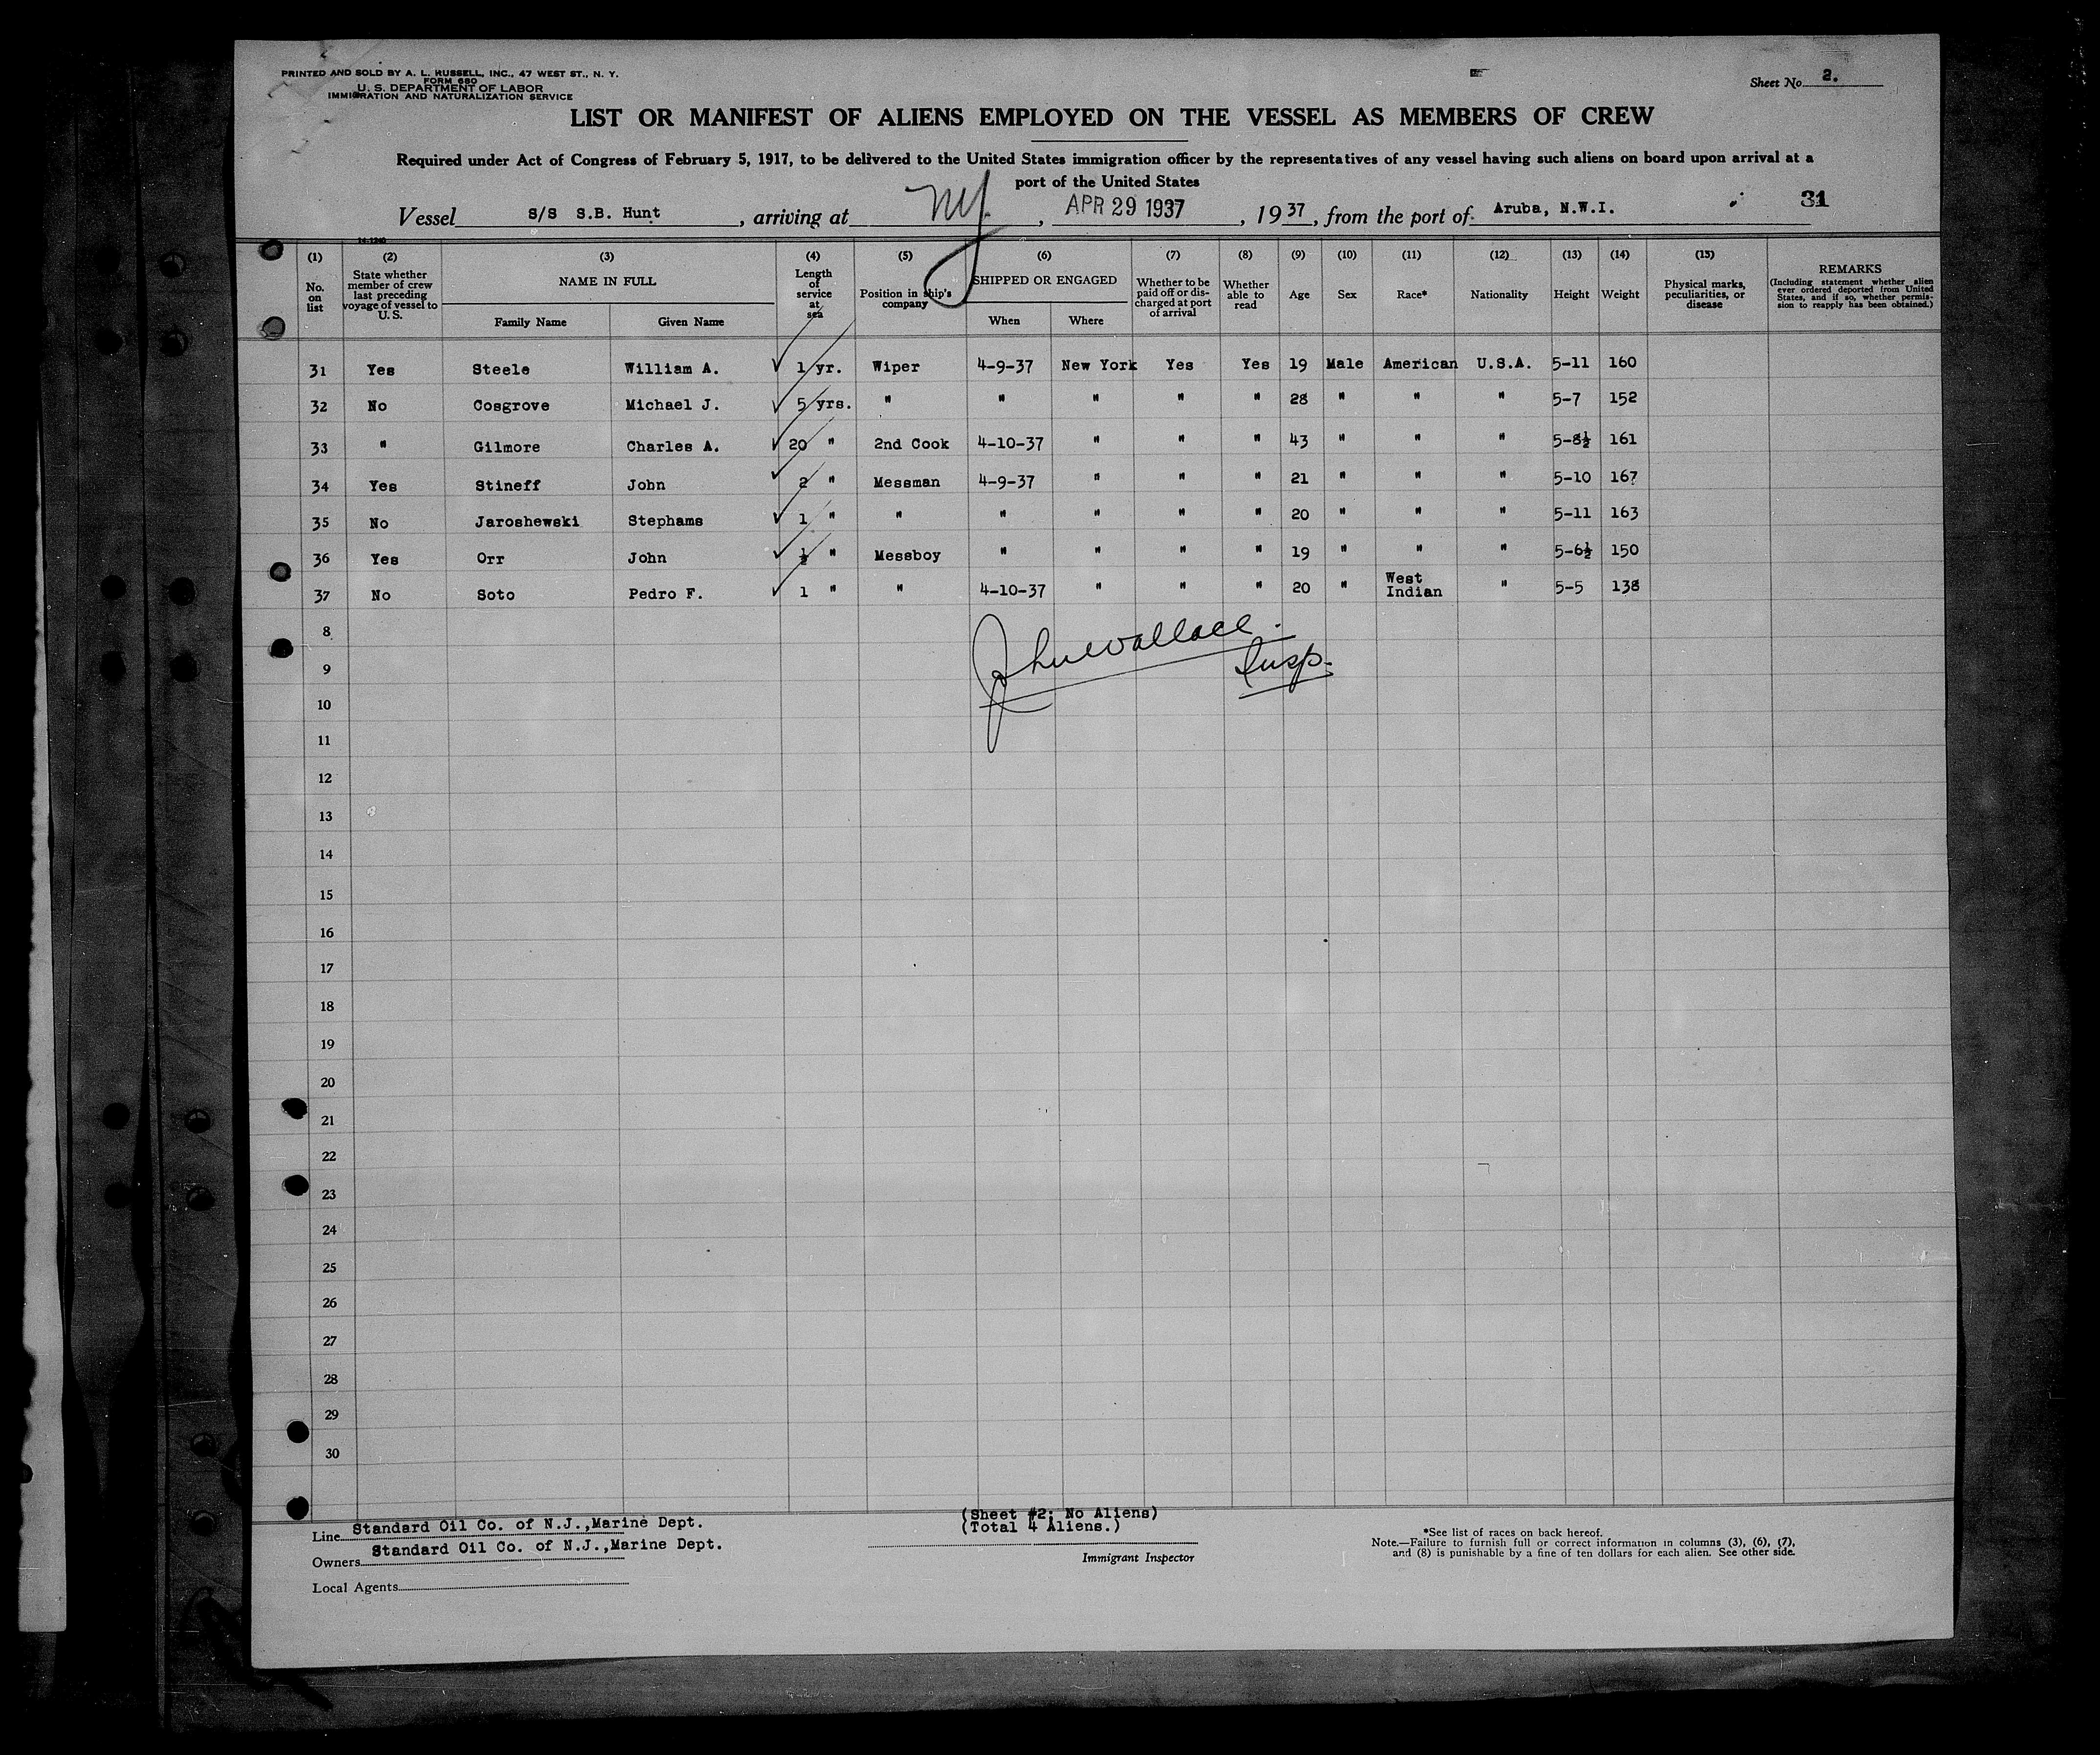 PRINTED AND SOLD BY A. L. RUSSELL, INC., 47 WEST ST., N. Y.
FORM 680
U. S. DEPARTMENT OF LABOR
IMMIGRATION AND NATURALIZATION SERVICE
Sheet No. 2.
LIST OR MANIFEST OF ALIENS EMPLOYED ON THE VESSEL AS MEMBERS OF CREW
Required under Act of Congress of February 5, 1917, to be delivered to the United States immigration officer by the representatives of any vessel having such aliens on board upon arrival at a
port of the United States
31
Vessel S/S S.B. Hunt, arriving at NY., APR 29 1937, 1937, from the port of Aruba, N.W.I.
14-1240
(1) (2) (3) (4) (5) (6) (7) (8) (9) (10) (11) (12) (13) (14) (15)
No. on list
State whether member of crew last preceding voyage of vessel to U. S.
NAME IN FULL
Family Name Given Name
Length of service at sea
Position in ship's company
SHIPPED OR ENGAGED
When Where
Whether to be paid off or discharged at port of arrival
Whether able to read
Age Sex Race* Nationality Height Weight
Physical marks, peculiarities, or disease
REMARKS
(Including statement whether alien ever ordered deported from United States, and if so, whether permission to reapply has been obtained.)
31 Yes Steele William A. ✓ 1 yr. Wiper 4-9-37 New York Yes Yes 19 Male American U.S.A. 5-11 160
32 No Cosgrove Michael J. ✓ 5 yrs. " " " " " 28 " " " 5-7 152
33 " Gilmore Charles A. ✓ 20 " 2nd Cook 4-10-37 " " " 43 " " " 5-8½ 161
34 Yes Stineff John ✓ 2 " Messman 4-9-37 " " " 21 " " " 5-10 167
35 No Jaroshewski Stephams ✓ 1 " " " " " " 20 " " " 5-11 163
36 Yes Orr John ✓ ½ " Messboy " " " " 19 " " " 5-6½ 150
37 No Soto Pedro F. ✓ 1 " " 4-10-37 " " " 20 " West Indian " 5-5 138
8
John Wallace.
9
Insp.
10
11
12
13
14
15
16
17
18
19
20
21
22
23
24
25
26
27
28
29
30
(Sheet #2: No Aliens)
(Total 4 Aliens.)
Line Standard Oil Co. of N.J.,Marine Dept.
Owners Standard Oil Co. of N.J.,Marine Dept.
Local Agents
Immigrant Inspector
*See list of races on back hereof.
Note.—Failure to furnish full or correct information in columns (3), (6), (7),
and (8) is punishable by a fine of ten dollars for each alien. See other side.